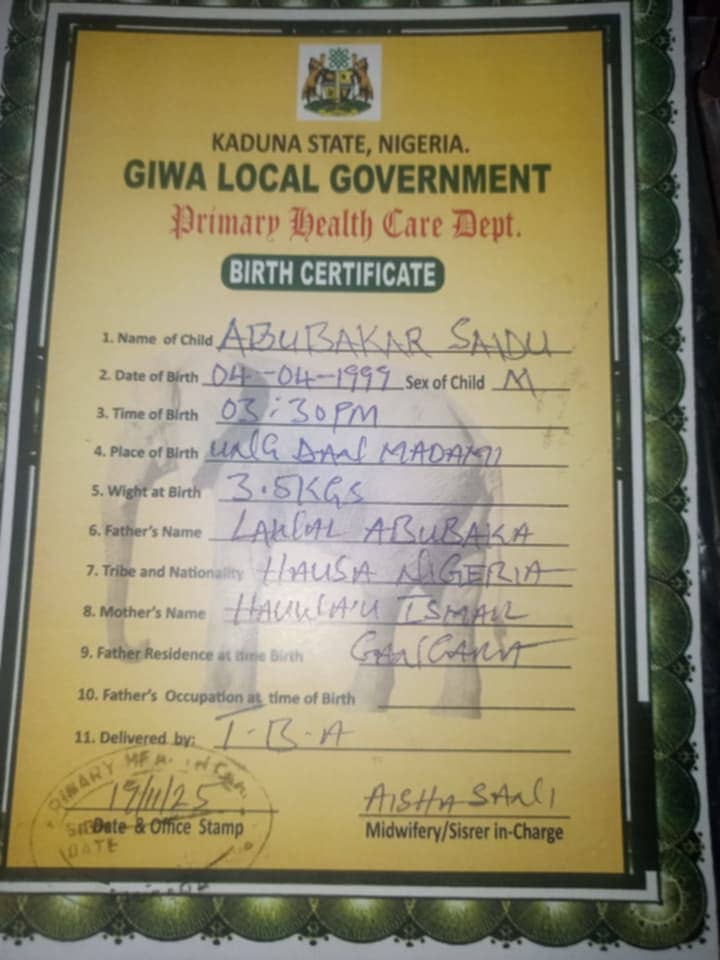 KADUNA STATE, NIGERIA.
GIWA LOCAL GOVERNMENT
Primary Health Care Dept.
BIRTH CERTIFICATE
1. Name of Child ABUBAKAR SAIDU
2. Date of Birth 04-04-1999 Sex of Child M
3. Time of Birth 03:30PM
4. Place of Birth MADAMI
5. Wight at Birth 3.5KGS
6. Father's Name LAWAL ABUBAKA
7. Tribe and Nationality HAUSA NIGERIA
8. Mother's Name ISMAIL
9. Father Residence at time Birth
10. Father's Occupation at time of Birth
11. Delivered by: T.B.A
19/11/25 AISHA SANI
Date & Office Stamp Midwifery/Sisrer in-Charge
DATE